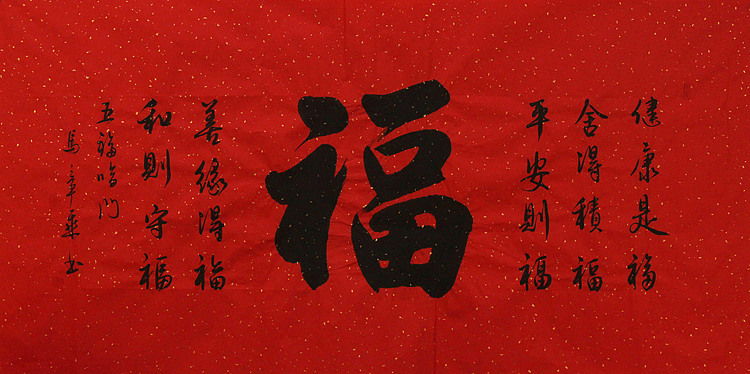 健康是福
舍得積福
平安則福
福
善緣得福
和則守福
五福臨门
馬章乘书